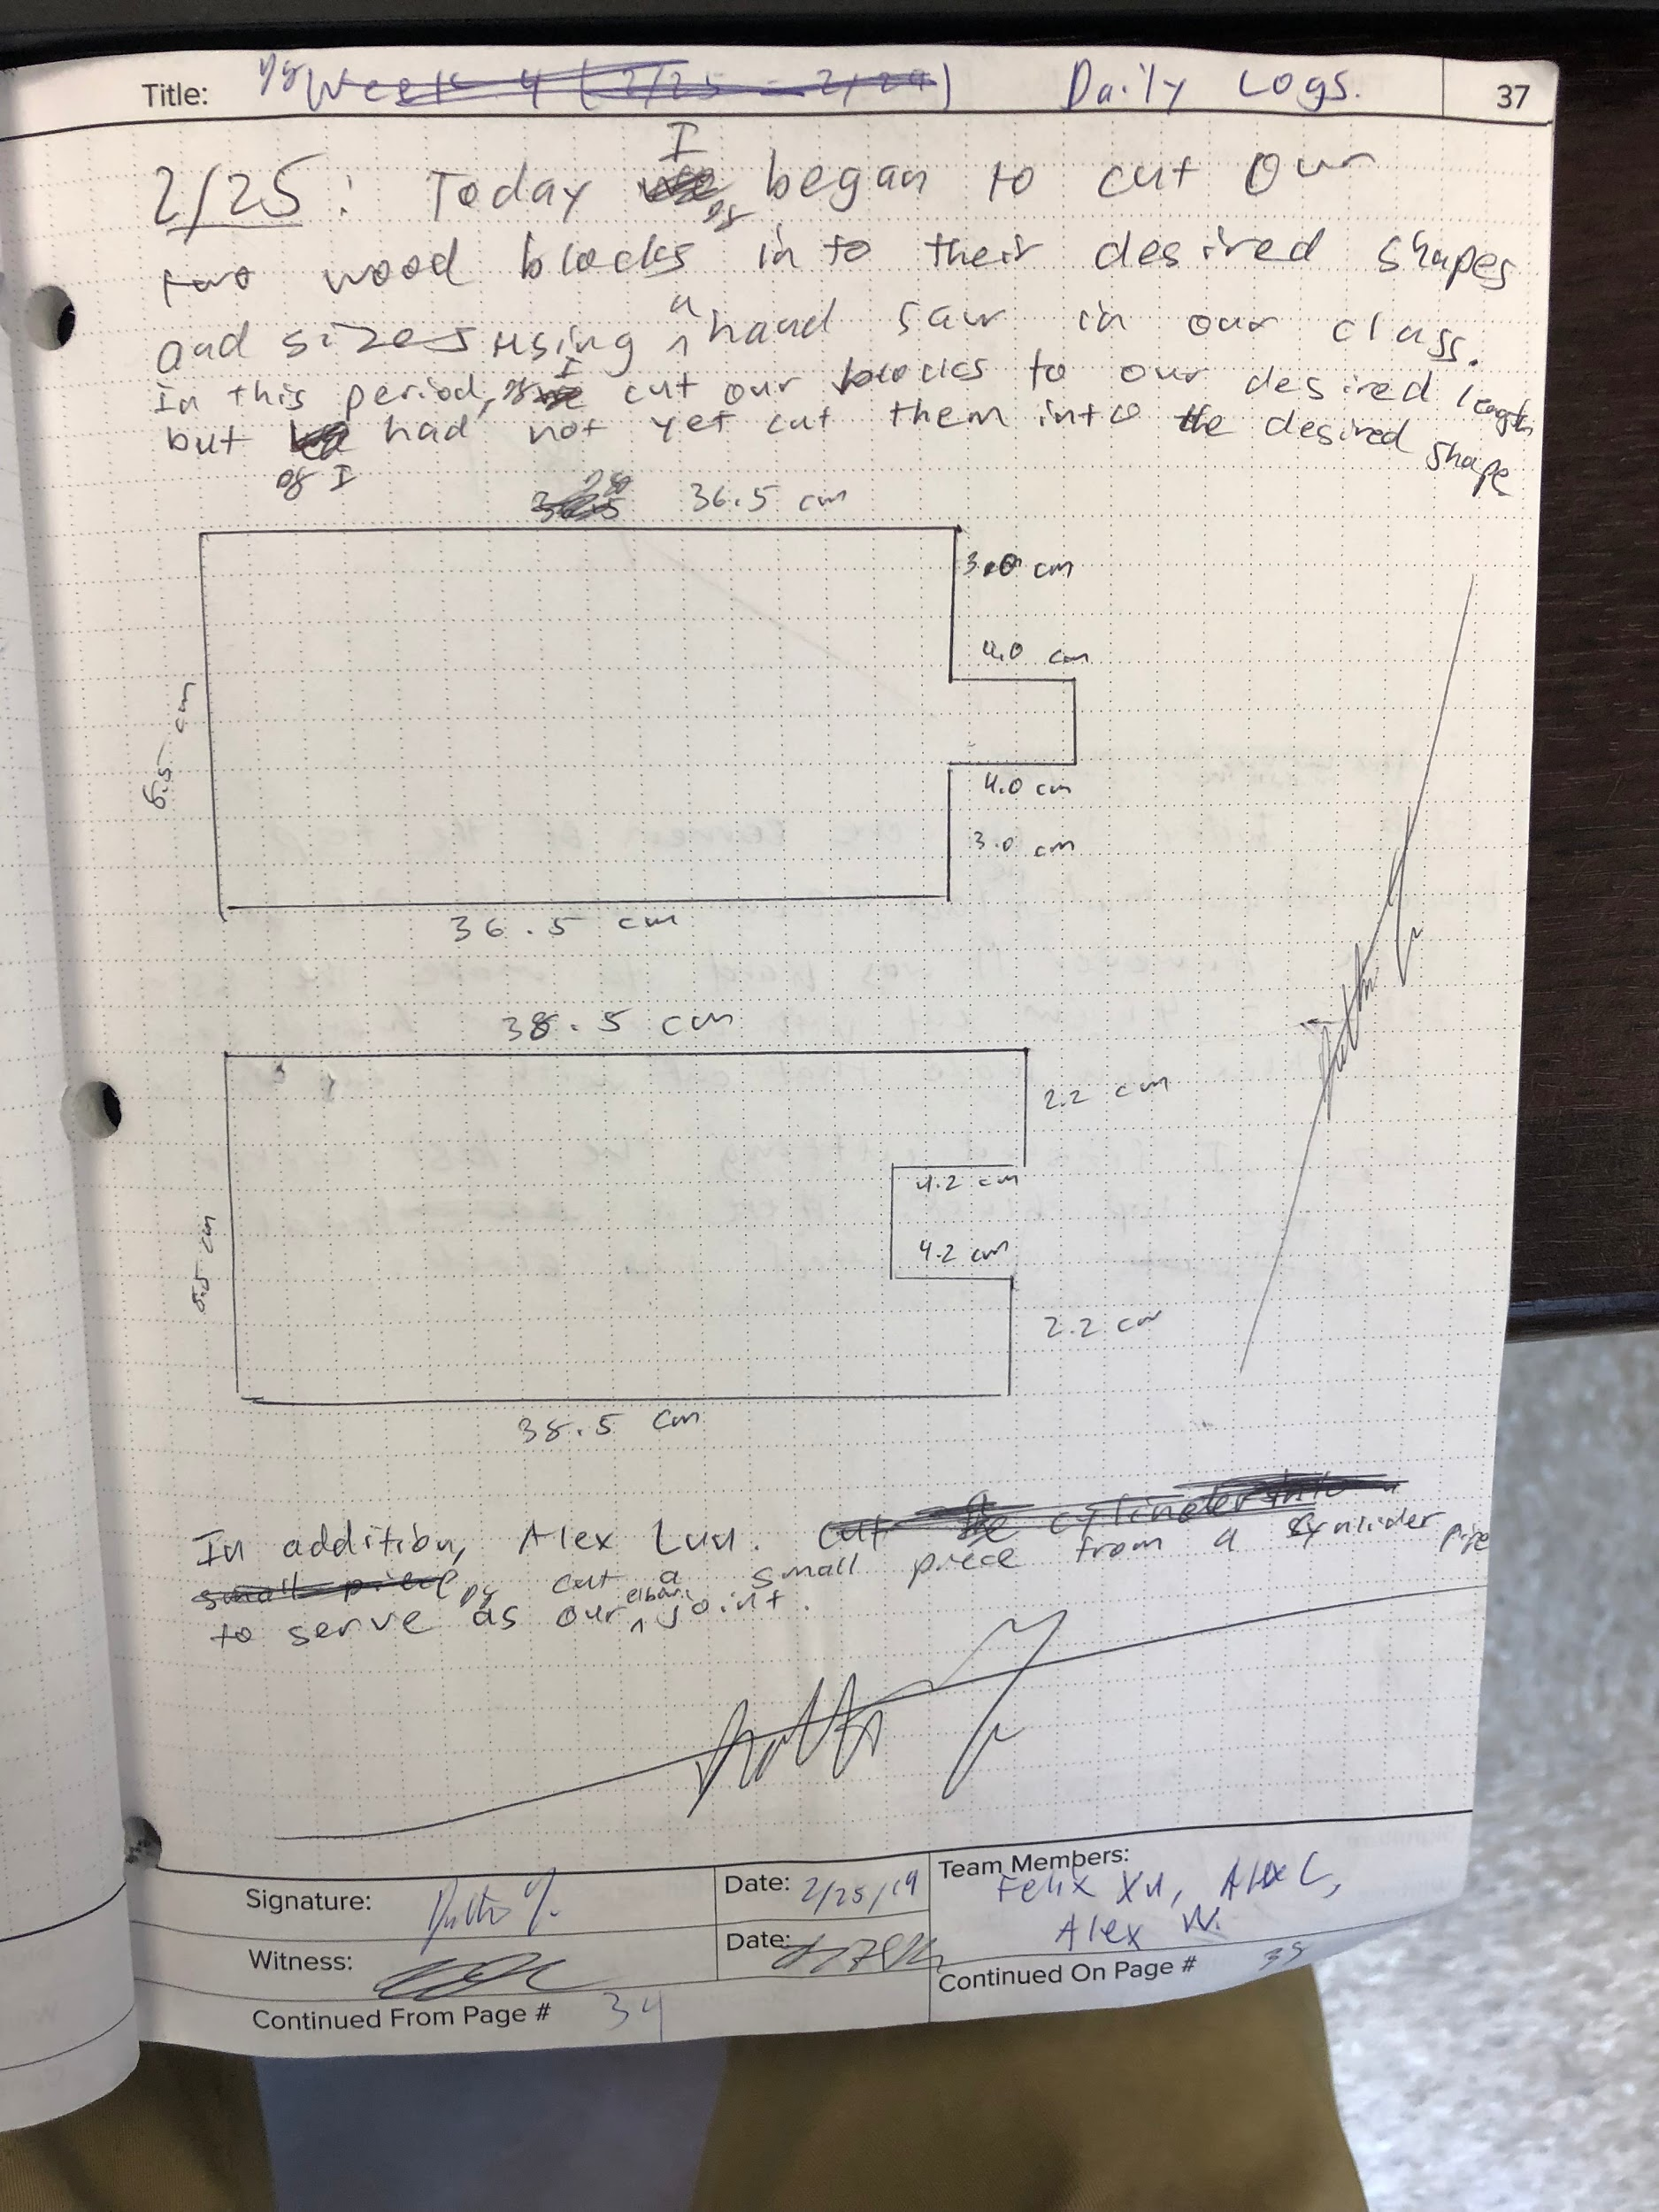 Title: Week 4 (2/25 - 2/29) Daily Logs. 37
I
2/25: Today began to cut our
two wood blocks into their desired shapes
and sizes using a hand saw in our class.
In this period, I cut our blocks to our desired length
but had not yet cut them into the desired shape
I
36.5 cm
3.0 cm
4.0 cm
4.0 cm
3.0 cm
36.5 cm
38.5 cm
2.2 cm
4.2 cm
4.2 cm
2.2 cm
38.5 cm
In addition, Alex cut the cylinder into
small piece cut a small piece from a cynlider pipe
to serve as our elbow joint.
Signature: Date: 2/25/19 Team Members:
Felix Xu, Alex L,
Alex W.
Witness: Date:
Continued From Page # 34 Continued On Page #